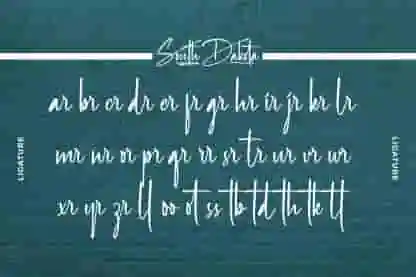 South Dakota
ar br cr dr er fr gr hr ir jr kr lr
LIGATURE
mr nr or pr qr rr sr tr ur vr wr
LIGATURE
xr yr zr ll oo ot ss tb td th tk tt